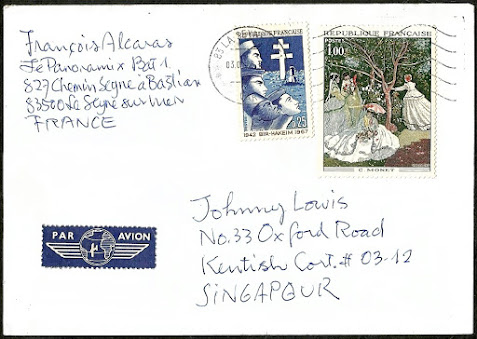 François Alcaras
Le Panoramix Bat 1
827 Chemin Seyne à Bastian
83500 La Seyne sur mer
FRANCE
REPUBLIQUE FRANCAISE
25
1942 BIR-HAKEIM 1967
83 LA
03.0
POSTES
REPUBLIQUE FRANÇAISE
1,00
C. MONET
PAR AVION
Johnny Lowis
No. 33 Oxford Road
Kentish Cort. # 03-12
SINGAPOUR